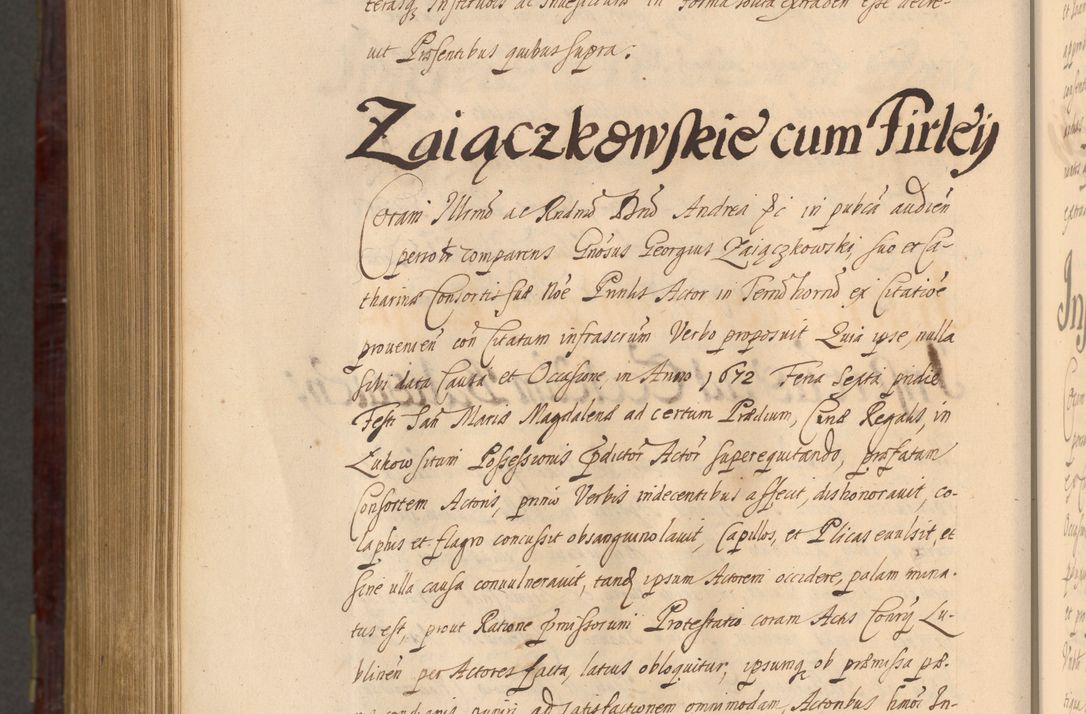 terasq Institutos ac Investituras in forma solita extraden esse decre-
uit Præsentibus quibus supra.
Zaiączkowskie cum Firleÿ
Coram Illrmo ac Rndmo Dno Andrea &c in pubca audien
personr comparens Gnosus Georgius Zaiączkowski, suo et Ca-
tharinæ Consortis suæ noe Prinlis Actor in Termo horno ex Citatioe
prouenien con Citatum infrascrum Verbo proposuit Quia ipse, nulla
sibi data Causa et Occasione, in Anno 1672 Feria Sexta pridie
Festi San Mariæ Magdalenæ ad certum Prædium, Cænæ Regalis, in
Zukow situm Possessionis prdictor Actor superequitando, præfatam
Consortem Actoris, primo Verbis indecentibus affecit, dishonorauit, co-
laphis et flagro concussit obsanguinolauit, Capillos, et Plicas euulsit, et
sine ulla causa conuulnerauit, tandq ipsum Actorem occidere, palam mina-
tus est, prout Ratione præmissorum Protestatio coram Actis Consrÿ Lu-
blinen per Actores facta, latius obloquitur, ipsumq ob præmissa pæ-
puniri ad satisfactionem omnimodam, Actoribus hmoi In-